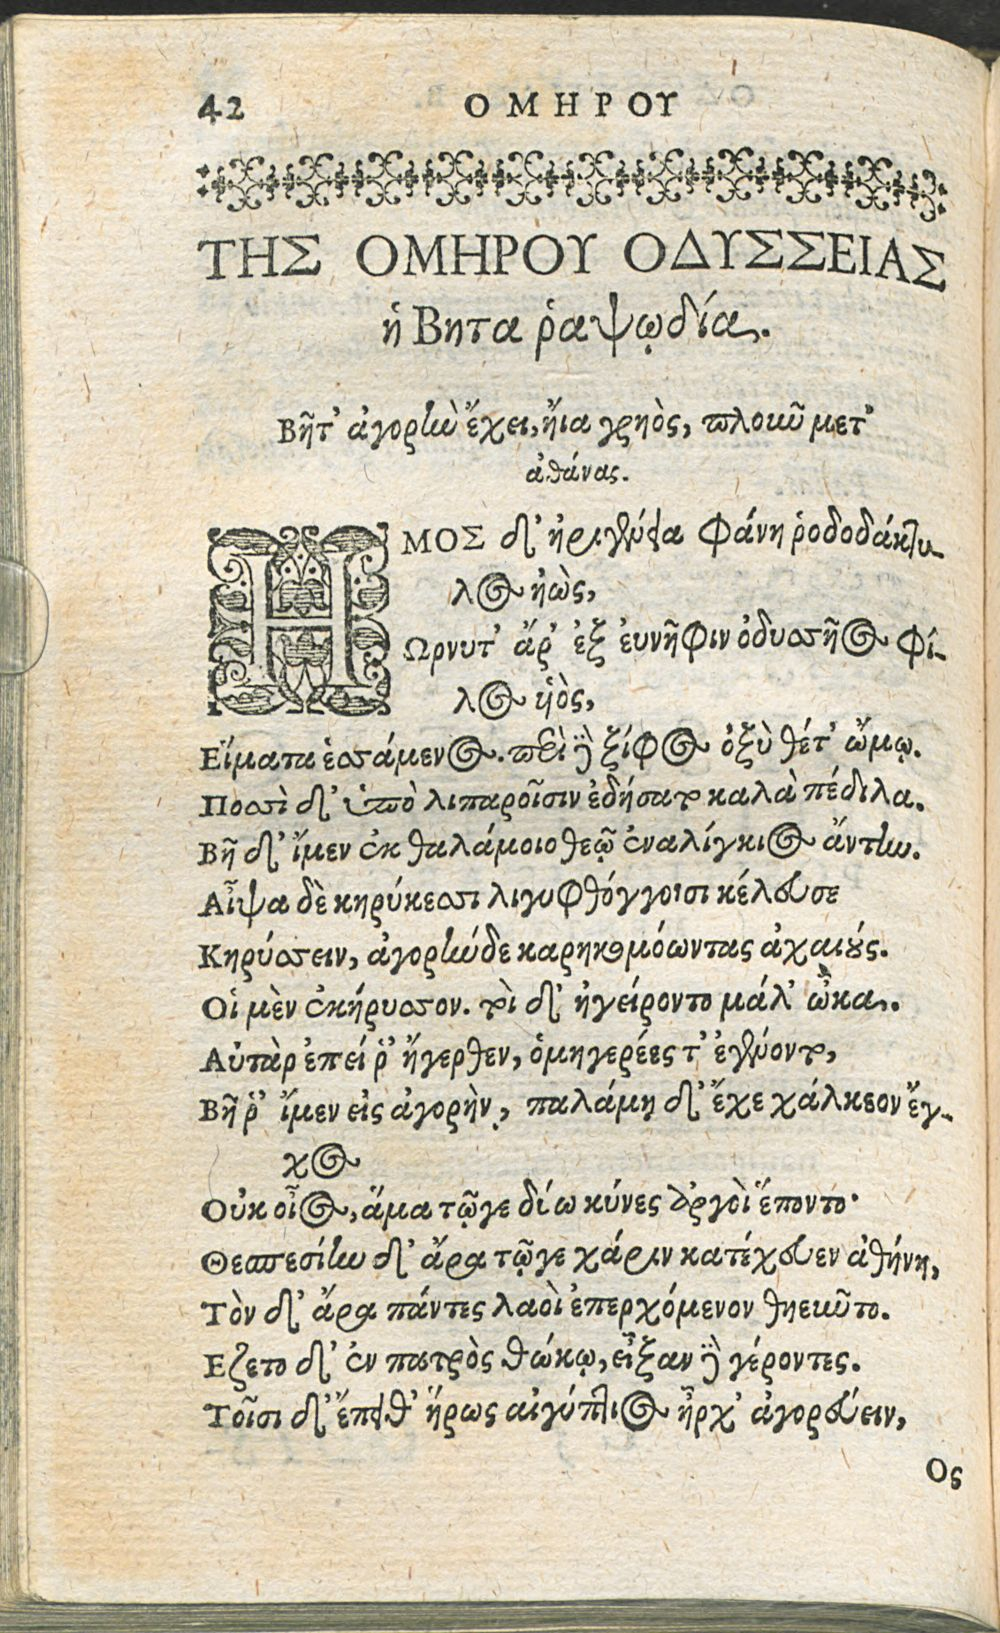 42 ΟΜΗΡΟΥ
ΤΗΣ ΟΜΗΡΟΥ ΟΔΥΣΣΕΙΑΣ
ἡ Βητα ῥαψῳδία.
Βῆτ' ἀγορὴν ἔχει, ἤϊα γρηὸς, πλοῦν μετ'
ἀθάνας.
ΗΜΟΣ δ' ἠριγένεια φάνη ῥοδοδάκτυ-
λος ἠὼς,
Ωρνυτ' ἄρ' ἐξ ἐυνῆφιν ὀδυσσῆος φί-
λος ὑὸς,
Εἵματα ἑσσάμενος. περὶ δὲ ξίφος ὀξὺ θέτ' ὤμῳ.
Ποσσὶ δ' ὑπὸ λιπαροῖσιν ἐδήσατο καλὰ πέδιλα.
Βῆ δ' ἴμεν ἐκ θαλάμοιο θεῷ ἐναλίγκιος ἄντην.
Αἶψα δὲ κηρύκεσσι λιγυφθόγγοισι κέλευσε
Κηρύσσειν, ἀγορήνδε καρηκομόωντας ἀχαιούς.
Οἱ μὲν ἐκήρυσσον. τοὶ δ' ἠγείροντο μάλ' ὦκα.
Αὐτὰρ ἐπεί ῥ' ἤγερθεν, ὁμηγερέες τ' ἐγένοντο,
Βῆ ῥ' ἴμεν εἰς ἀγορὴν, παλάμῃ δ' ἔχε χάλκεον ἔγ-
χος
Οὐκ οἶος, ἅμα τῷγε δύω κύνες ἀργοὶ ἕποντο·
Θεσπεσίην δ' ἄρα τῷγε χάριν κατέχευεν ἀθήνη,
Τὸν δ' ἄρα πάντες λαοὶ ἐπερχόμενον θηεῦντο.
Εζετο δ' ἐν πατρὸς θώκῳ, εἶξαν δὲ γέροντες.
Τοῖσι δ' ἔπειθ' ἥρως αἰγύπτιος ἦρχ' ἀγορεύειν,
Ος